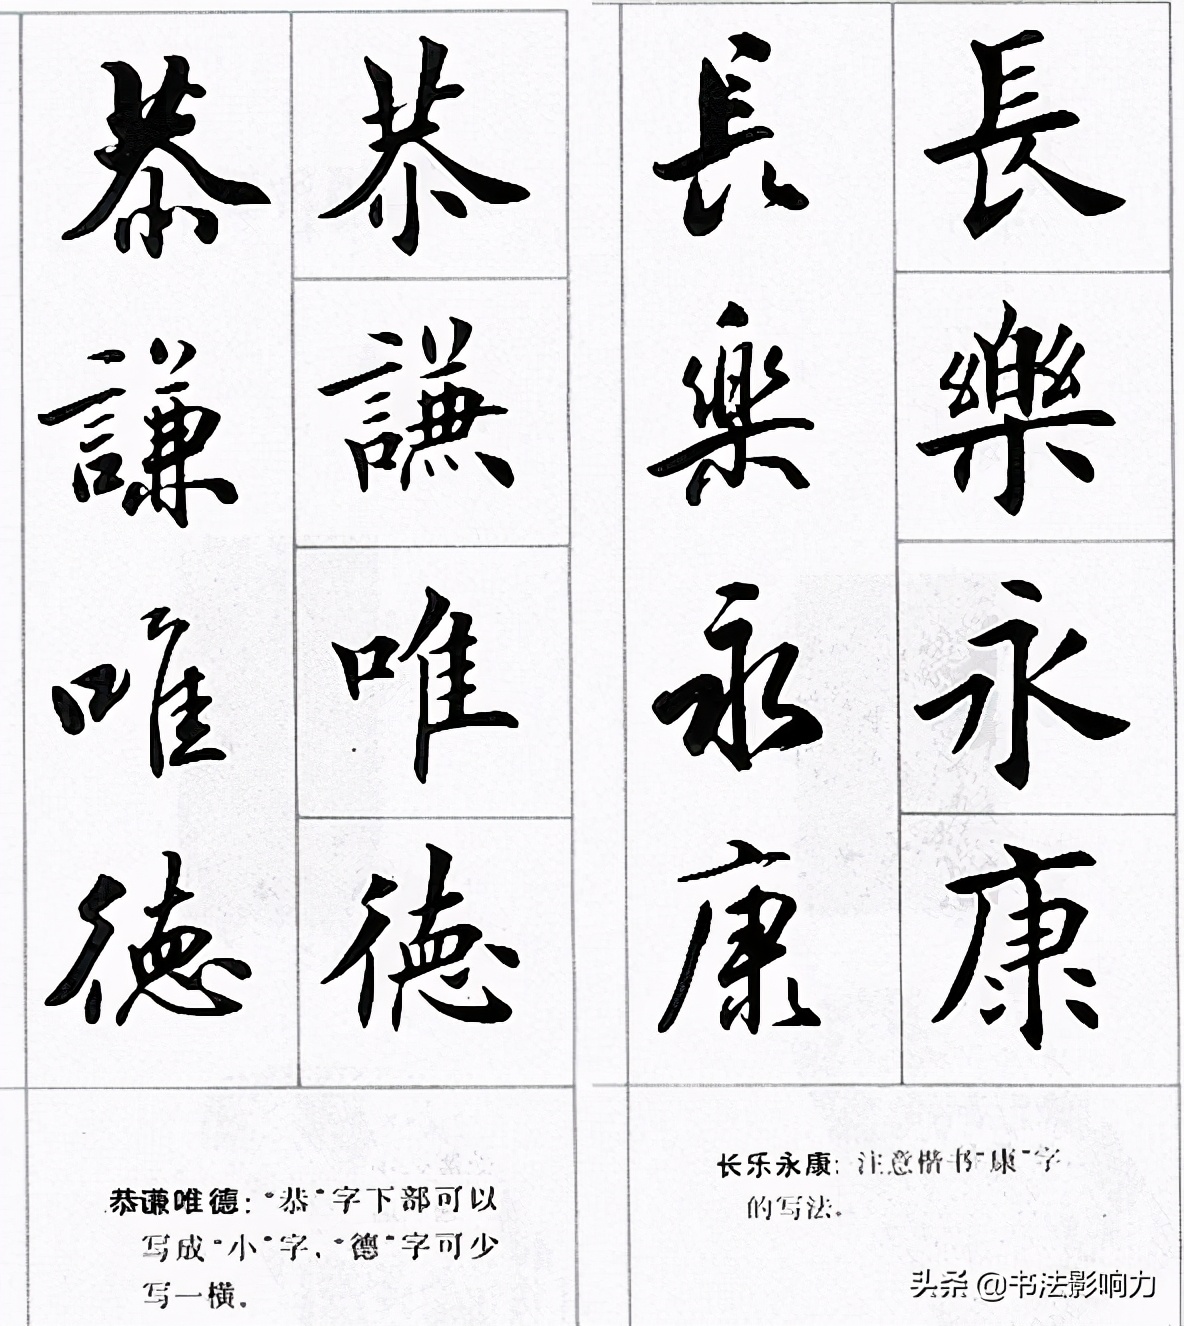 恭謙唯德
恭謙唯德
恭谦唯德：“恭”字下部可以
写成“小”字，“德”字可少
写一横。
長樂永康
長樂永康
长乐永康：注意楷书“康”字
的写法。
头条 @书法影响力